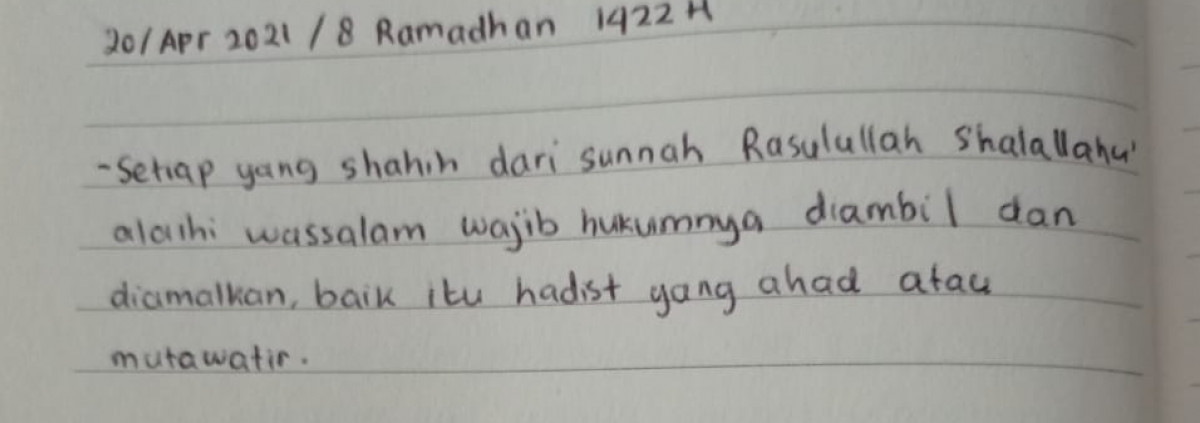 20/Apr 2021 / 8 Ramadhan 1422 H
- Setiap yang shahih dari sunnah Rasulullah Shalallahu'
alaihi wassalam wajib hukumnya diambil dan
diamalkan, baik itu hadist yang ahad atau
mutawatir.